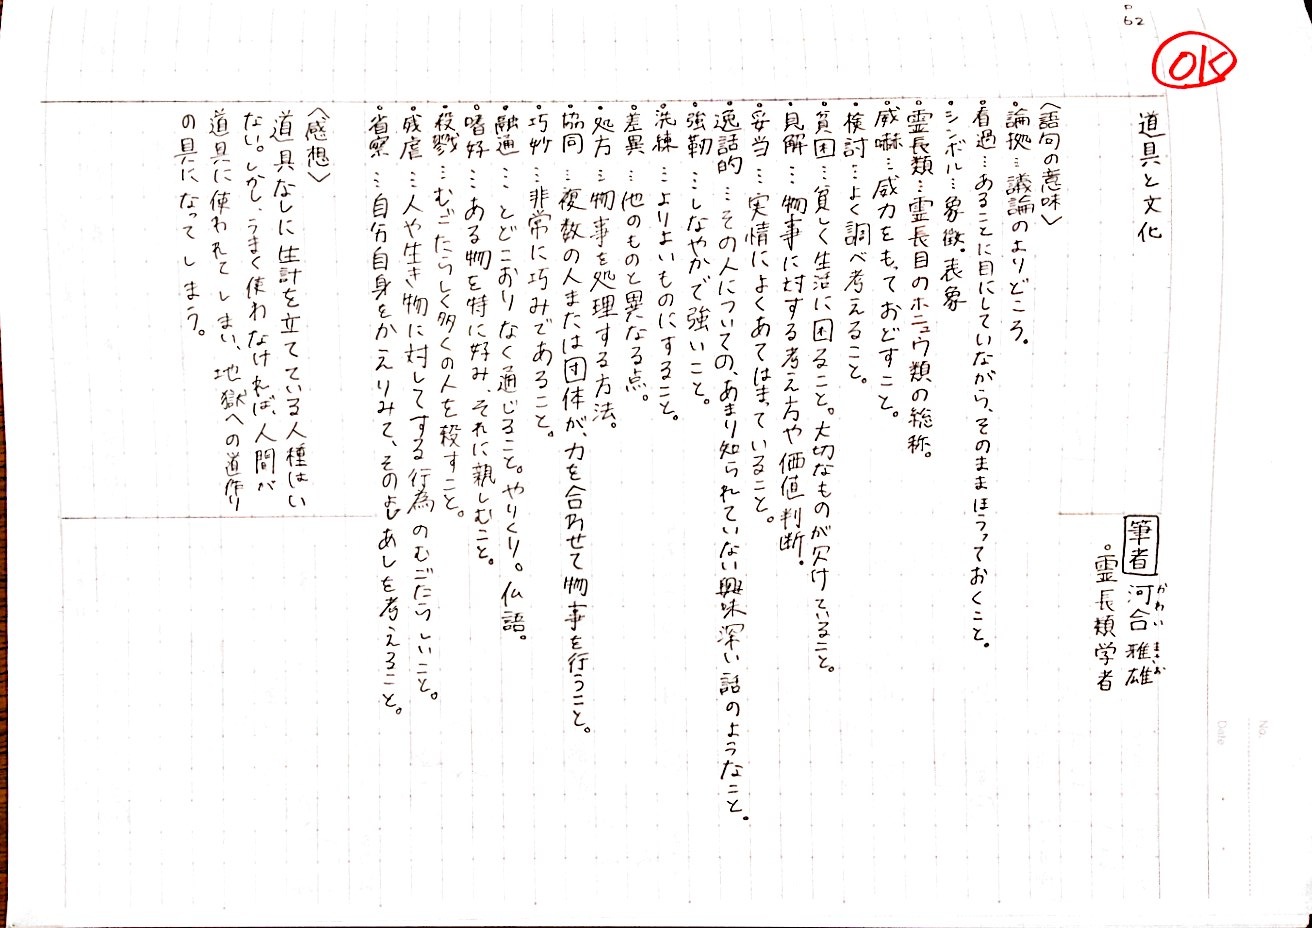 P62
OK
道具と文化
筆者 河合雅雄
かわい まさお
・霊長類学者
〈語句の意味〉
・論拠…議論のよりどころ。
・看過…あることに目にしていながら、そのままほうっておくこと。
・シンボル…象徴。表象
・霊長類…霊長目のホニュウ類の総称。
・威嚇…威力をもっておどすこと。
・検討…よく調べ考えること。
・貧困…貧しく生活に困ること。大切なものが欠けていること。
・見解…物事に対する考え方や価値判断。
・妥当…実情によくあてはまっていること。
・逸話的…その人についての、あまり知られていない興味深い話のようなこと。
・強靭…しなやかで強いこと。
・洗練…よりよいものにすること。
・差異…他のものと異なる点。
・処方…物事を処理する方法。
・協同…複数の人または団体が、力を合わせて物事を行うこと。
・巧妙…非常に巧みであること。
・融通…とどこおりなく通じること。やりくり。仏語。
・嗜好…ある物を特に好み、それに親しむこと。
・殺戮…むごたらしく多くの人を殺すこと。
・残虐…人や生き物に対してする行為のむごたらしいこと。
・省察…自分自身をかえりみて、そのよしあしを考えること。
〈感想〉
道具なしに生計を立てている人種はい
ない。しかし、うまく使わなければ、人間が
道具に使われてしまい、地獄への道作り
の具になってしまう。
No.
Date